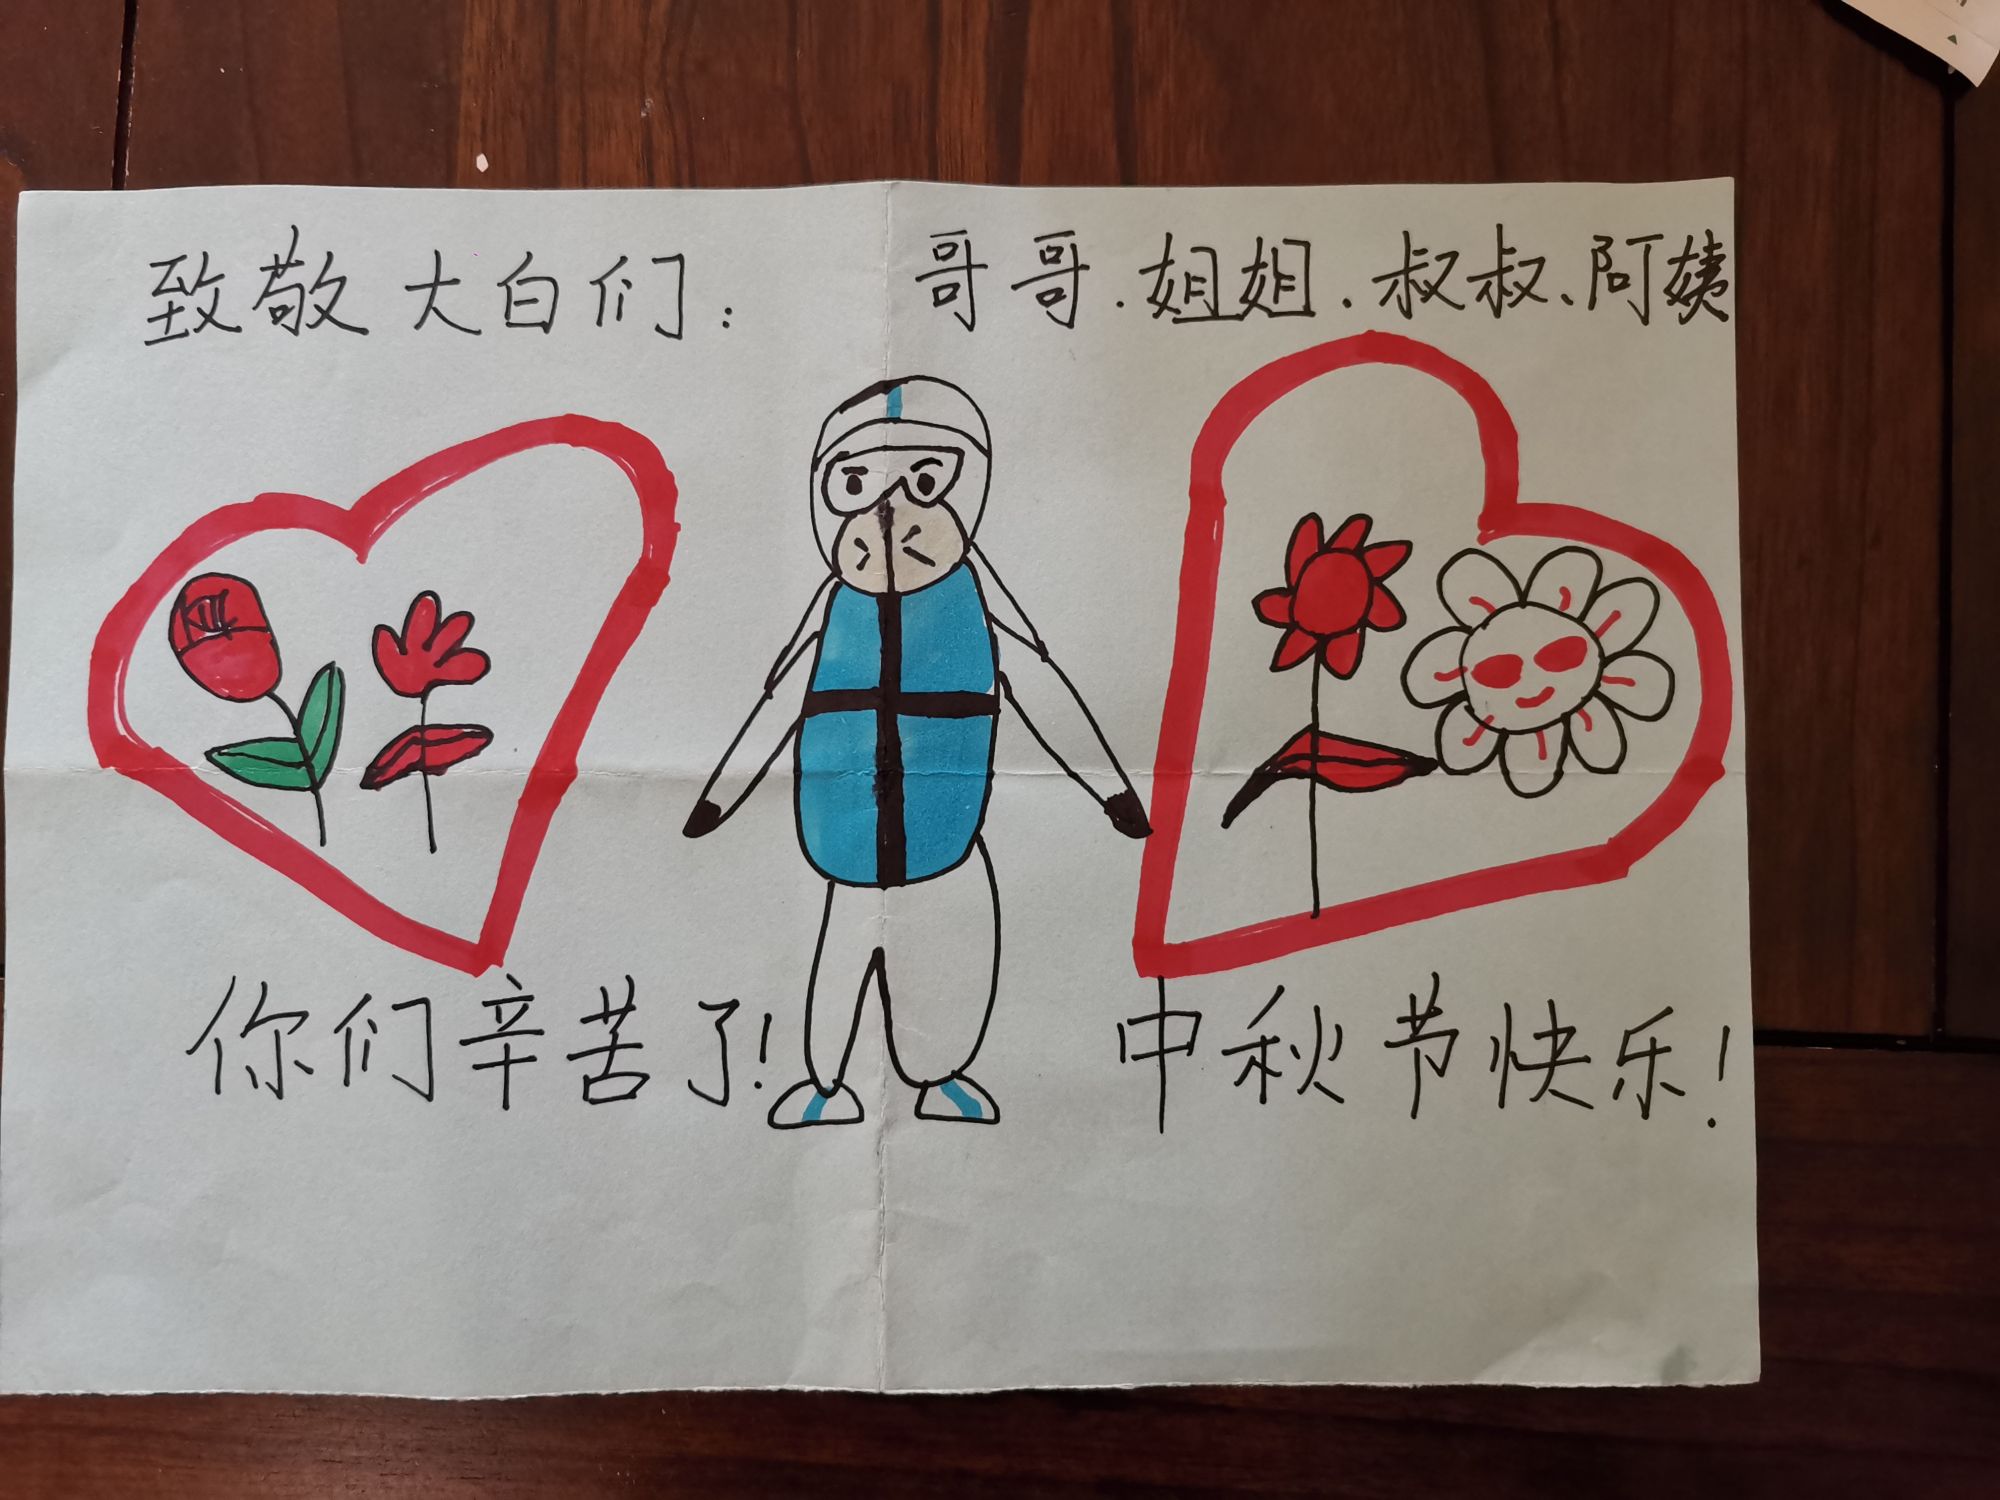 致敬大白们： 哥哥.姐姐.叔叔、阿姨
你们辛苦了！ 中秋节快乐！